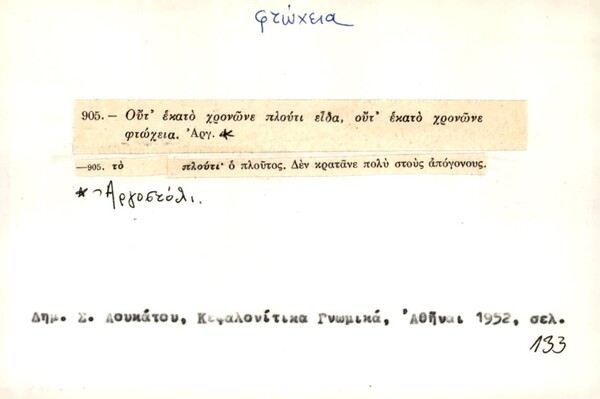 φτώχεια
905.— Οὔτ' ἑκατὸ χρονῶνε πλούτι εἶδα, οὔτ' ἑκατὸ χρονῶνε
φτώχεια. Ἀργ. *
—905. τὸ πλούτι· ὁ πλοῦτος. Δὲν κρατᾶνε πολὺ στοὺς ἀπόγονους.
* Ἀργοστόλι.
Δημ. Σ. Λουκάτου, Κεφαλονίτικα Γνωμικά, Ἀθῆναι 1952, σελ.
133